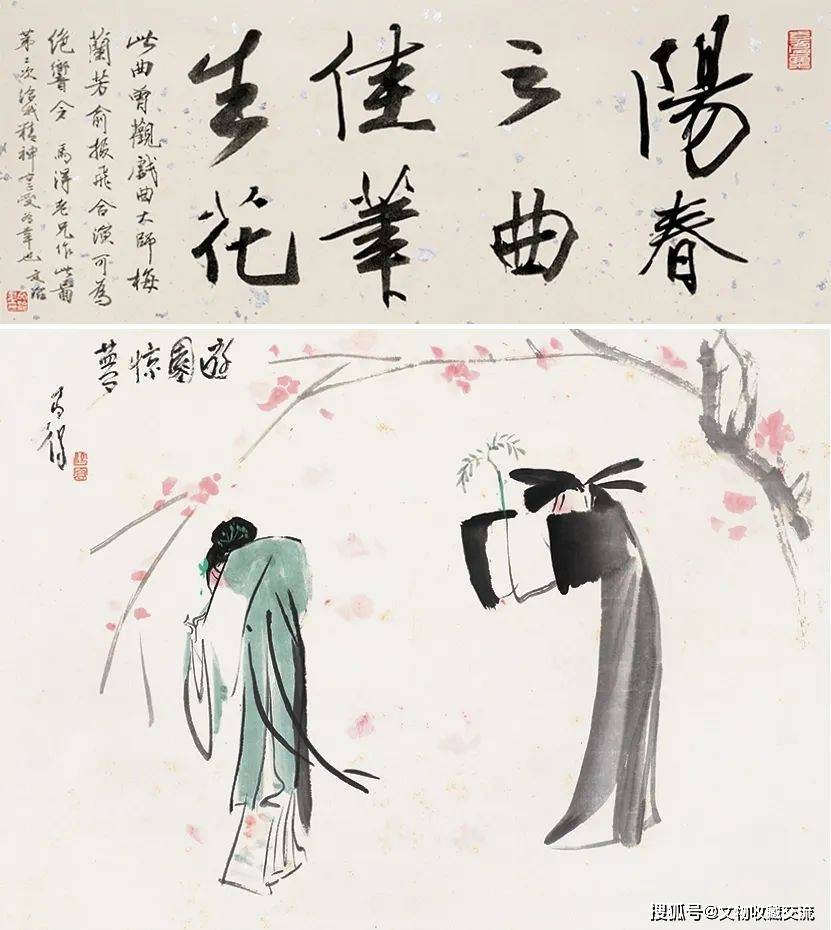 陽春
之曲
佳筆
生花
此曲曾觀戲曲大師梅
蘭芳俞振飛合演可為
絕響今 馬得老兄作此圖
第二次 精神 受 幸也 文治
遊園惊夢
馬得
搜狐号@文物收藏交流